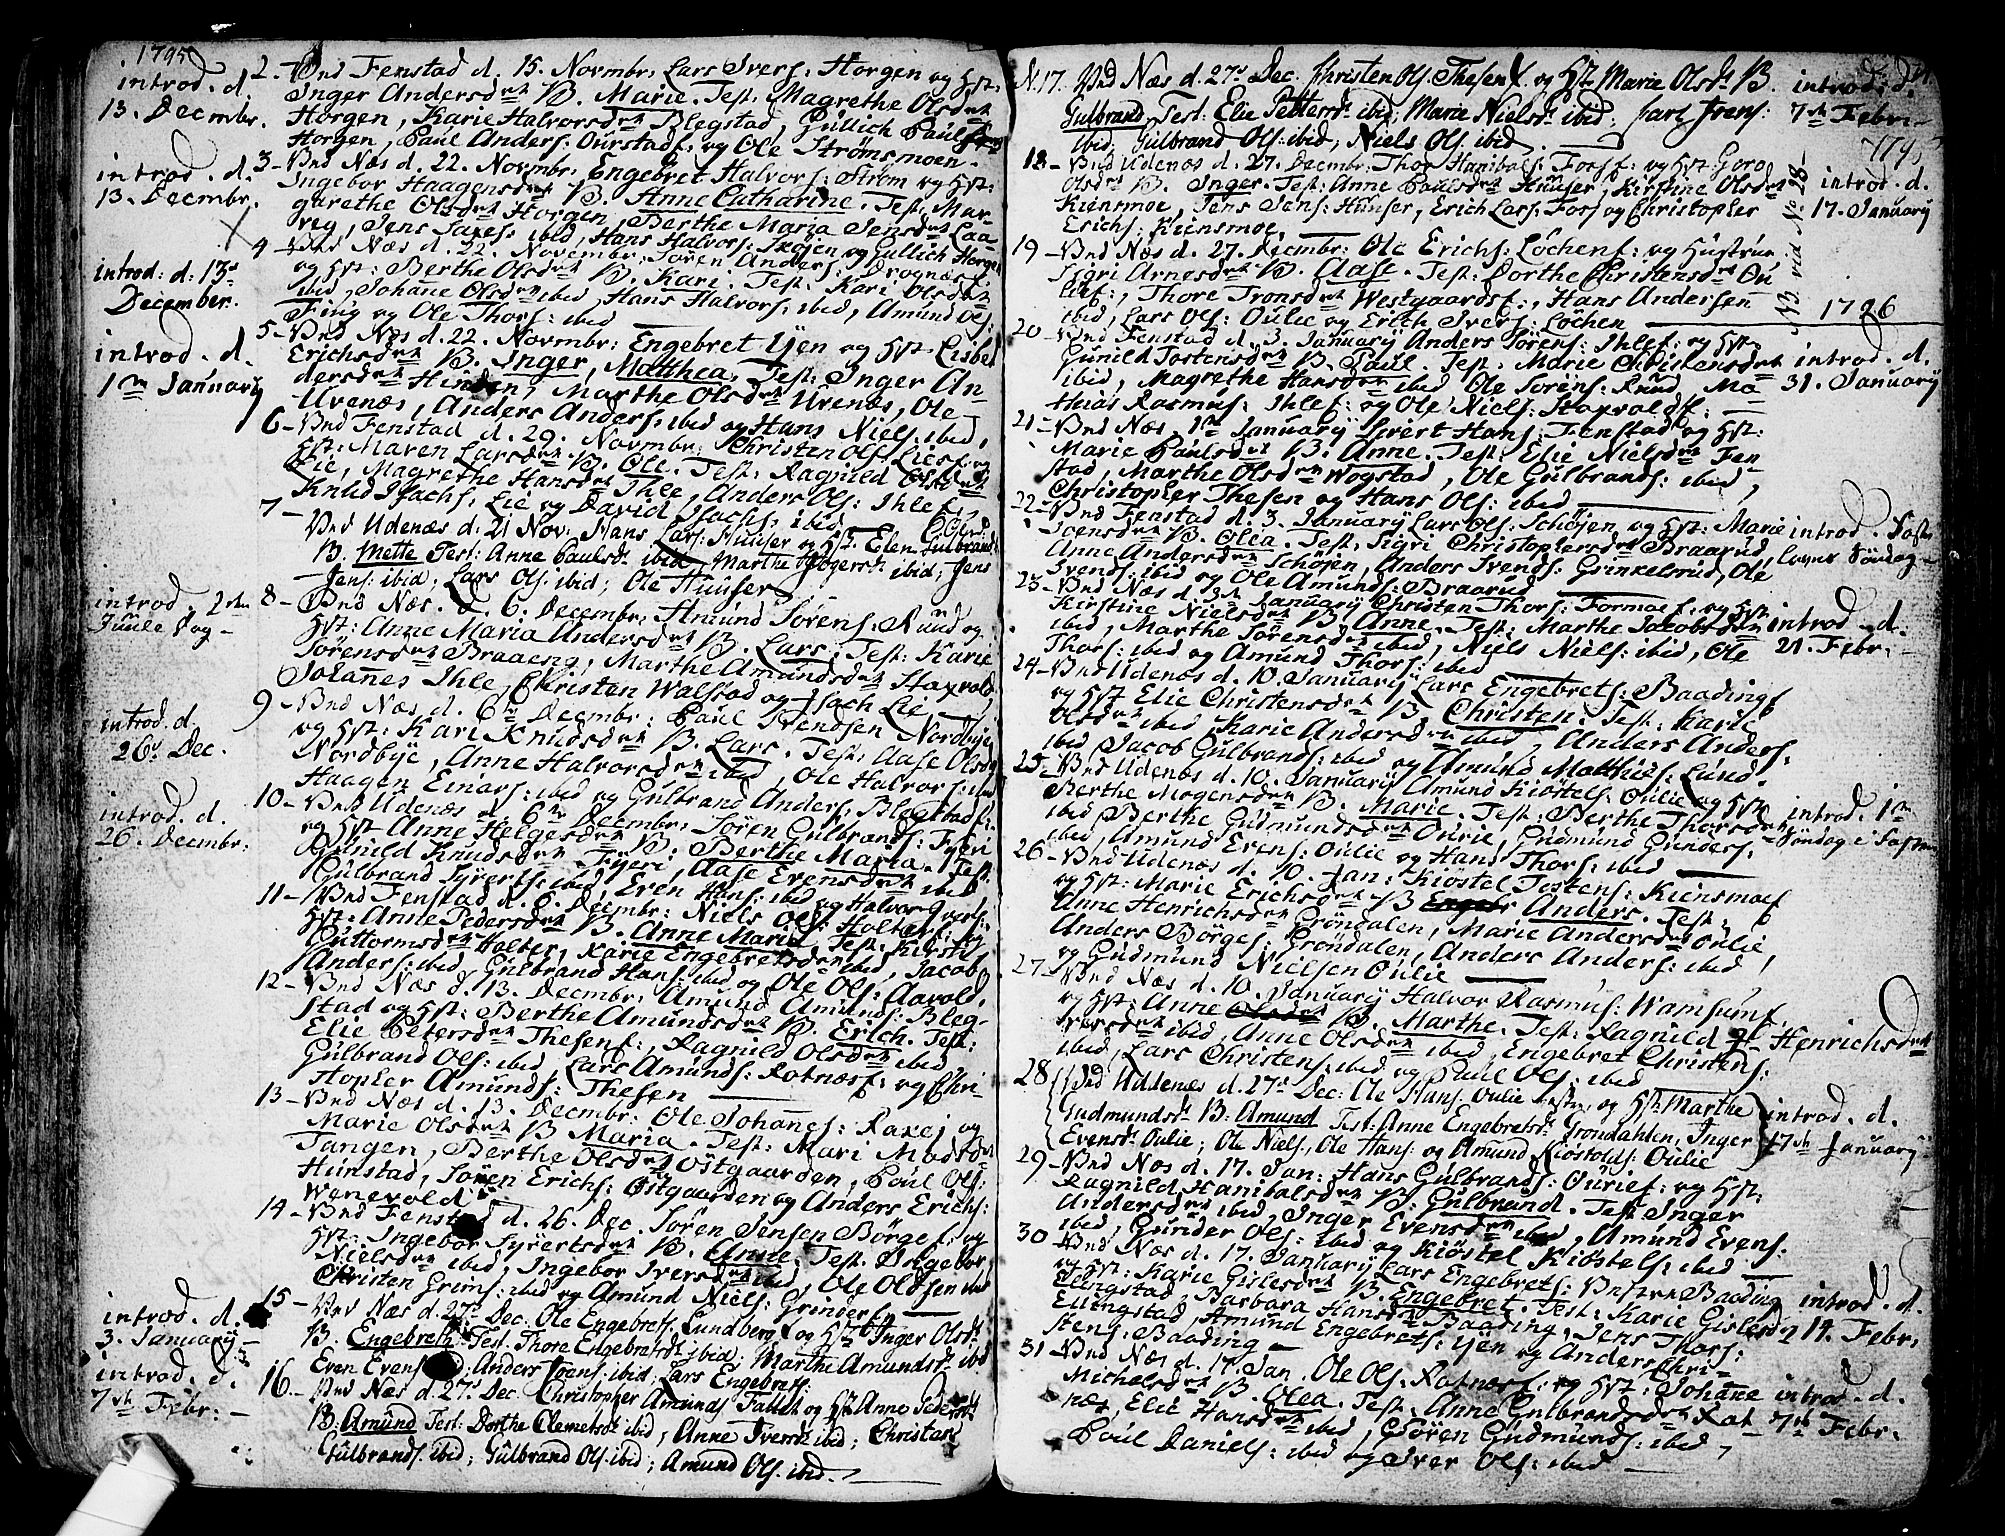 1795
introd. d.
13. Decembr.
2 - Vnd Fenstad d. 15. Novmbr: Lars Ivers: Horgen og Hst:
Inger Andersdtr B. Marie. Test: Magrethe Olsdtr
Horgen, Karie Halvorsdtr Blegstad, Gullich Pauls:
Horgen, Paul Anders: Ouirstadf: og Ole Strømsmoen.
introd. d.
13. Decembr.
3 - Vnd Næs d. 22. Novmbr: Engebret Halvors: Strøm og Hst:
Ingebor Haagensdtr B. Anne Catharine. Test: Mar-
garethe Olsdtr Horgen, Berthe Maria Jensdtr Laa-
veg, Jens ibid, Hans Halvors: Skøjen og Gullich Horgen
introd: d: 13d
December.
4 - Vnd Næs d. 22. November Søren Anders: Drognæsf:
og Hst: Berthe Olsdtr B. Kari. Test: Kari Olsdtr
ibid, Johañe Olsdtr ibid, Hans Halvors: ibid, Amund Ols:
Fiug og Ole Thors: ibid
introd. d.
1ste Januarÿ
5 - Vnd Næs d. 22. Novmbr: Engebret Ujen og Hst. Lisbet
Erichsdtr B. Inger, Matthea. Test: Inger An-
dersdtr Marthe Olsdtr Urenæs, Ole
Urenæs, Anders Anders: ibid og Hans Niels: ibid,
6 - Vnd Fenstad d. 29. Novmbr: Christen Ols: Lief: og
Hst: Maren Larsdtr B. Ole. Test: Ragnild Olsdtr
Lie, Magrethe Hansdtr Ihle, Anders Ols: Ihlef:
Knud Isachs: Lie og David Isachs: ibid
7 - Vnd Udenæs d. 21 Nov: Hans Lars: Huuser og Hst: Elen Gulbrands
B. Mette Test: Anne Paulsdr ibid, Marthe ibid; Jens
Jens: ibid; Lars Ols: ibid; Ole Huuser
introd. 2den
Juule Dag -
8 - Vnd Næs. d. 6. Decembr: Amund Sørens: Ruud og
Hst: Anne Maria Andersdtr B. Lars. Test: Karie
Sørensdtr Braaeng, Marthe Amundsdtr Haxvold
Johannes Ihle, Christen Walstad og Isach Lie
introd. d.
26d. Dec.
9 - Vnd Næs. d. 6te Decembr: Paul Svendsen Nordbÿe
og Hst: Kari Knudsdtr B. Lars. Test: Aase Olsdtr
Nordbÿe, Anne Halvorsdtr ibid, Ole Halvors: ibid
Haagen Einars: ibid og Gulbrand Anders: Blegstadf:
introd. d.
26. Decembr:
10 - Vnd Udenæs d. 6te Decembr: Søren Gulbrands: Fÿeri
og Hst Anne Helgesdtr B. Berthe Maria. Test:
Gunild Knudsdtr Fÿeri, Aase Evensdtr ibid
Gulbrand Syverts: ibid, Even Hans: ibid og Halvor Ivers:
11 - Vnd Fenstad d. 6. Decembr: Niels Ols: Holterf: og
Hst: Anne Pedersdtr B. Anne Marie. Test: Kirsti
Guttormsdtr Holter, Karie Engebretsdtr ibid, Jacob
Anders: ibid, Gulbrand Hans: ibid og Ole Ols: Aarold.
12 - Vnd Næs d. 13. Decembr: Amund Amunds: Bleg-
stad og Hst: Berthe Amundsdtr B. Erich. Test:
Elie Petersdtr Thesenf:, Ragnild Olsdtr ibid
Gulbrand Ols: ibid, Lars Amunds: Rotnæsf: og Chri-
stopher Amunds: Thesen
13 - Vnd Næs d. 13. Decmbr: Ole Johañes: Raxej og
Marie Olsdtr B. Maria. Test: Mari Madsdtr
Tangen, Berthe Olsdtr Østgaarden, Poul Ols:
Hunstad, Søren Erichs: Østgaarden og Anders Erichs:
Wenevold
14 - Vnd Fenstad d. 26. Dec. Søren Jensen Børgef: og
Hst: Ingebor Syvertsdtr B. Anne. Test: Ingebor
Nielsdtr ibid, Ingebor Iversdtr ibid, Ole Oldsen ibid
Christen Grims: ibid og Amund Niels: Grinderf:
introd. d.
3. Januarÿ -
15 - Vnd Næs d. 27d Dec: Ole Engebrets: Lundberg og Hst Inger Olsdr
B. Engebreth. Test: Thore Engebretsdr ibid; Marthe Amundsdr ibid
Even Evens: Anders Joens: ibid; Lars Engebrets:
introd. d.
7de Febr: -
16. - Vnd Næs d. 27d Dec. Christopher Amunds og Hst Anne Pedersdr
B: Amund Test: Dorthe Clemetsdr ibid, Anne Iversdr ibid; Christen
Gulbrands: ibid; Gulbrand Ols: ibid; Amund Ols: ibid.
N. 17. Vnd Næs d. 27d Dec. Christen Ols: Thesenf. og Hst Marie Olsdr B.
Gulbrand Test: Elie Pettersdr ibid; Marie Nielsdr ibid; Joens:
ibid; Gulbrand Ols: ibid, Niels Ols: ibid.
introd. d.
7de Febri-
1795
18 - Vnd Udenæs d. 27. Decembr: Thor Hanibals: Fossf: og Hst Goro
Olsdtr B. Inger. Test: Anne Paulsdtr Huuser, Kirstine Olsdtr
Kiensmoe, Jens Jens: Huuser, Erich Lars: Foss og Christopher
Erichs: Kiensmoe.
introd. d.
17. Januarÿ
NB. vid No 28
19 - Vnd Næs d. 27. Decmbr: Ole Erichs: Løchenf: og Hustrue
Sigri Arnesdtr B. Aase. Test: Dorthe Christensdtr Ou-
lief:, Thore Tronsdtr Westgaardsf:, Hans Andersen
ibid, Lars Ols: Oulie og Erich Ivers: Løchen
1796
20 - Vnd Fenstad d. 3. Januarÿ Anders Sørens: Ihlef: og Hst:
Gunild Tostensdtr B. Paul. Test: Marie Christensdtr
ibid, Magrethe Hansdtr ibid Ole Sørens: Ruud, Ma-
thias Rasmus: Ihlef: og Ole Niels: Haxvoldf:
introd. d.
31. Januarÿ
21 - Vnd Næs. 1ste Januarÿ Sivert Hans: Fenstad og Hst:
Marie Paulsdtr B. Anne. Test: Elie Nielsdtr Fen-
stad, Marthe Olsdtr Wogstad, Ole Gulbrands: ibid,
Christopher Thesen og Hans Ols: ibid
22 - Vnd Fenstad d. 3. Januarÿ Lars Ols: Schøjen og Hst: Marie
Joensdtr B. Olea. Test: Sigri Christophersdtr Braarud,
Anne Andersdtr Schøjen, Anders Svends: Grinkelsrud, Ole
Svends: ibid og Ole Amunds: Braarud
introd. Faste
Sognet Søndag -
23 - Vnd Næs d. 3de Januarÿ Christen Thors: Formoef. og Hst
Kirstine Nielsdtr B. Anne. Test: Marthe Jacobsdtr
ibid, Marthe Sørensdtr ibid, Niels Niels: ibid, Ole
Thors: ibid og Amund Thors: ibid
introd. d.
21. Febr: -
24 - Vnd Udenæs d. 10. Januarÿ Lars Engebrets: Baadingf
og Hst Elie Christensdtr B. Christen. Test: Karie
Olsdtr ibid Karie Andersdtr ibid, Anders Anders:
ibid Jacob Gulbrands: ibid og Amund Matthies: Lund.
25 - Vnd Udenæs d. 10. Januarÿ Amund Kiøstels: Oulie og Hst
Berthe Mogensdtr B. Marie. Test: Berthe Thorsdtr
ibid Berthe Gudmundsdtr Ourie, Gudmund Gunders:
ibid, Amund Evens: Oulie og Hans Thors: ibid
introd. 1ste
Søndag i Fasten
26 - Vnd Udenæs d. 10. Jan: Kiøstel Tostens: Kiensmoef
og Hst: Marie Erichsdtr B. Engebr Anders. Test:
Anne Henrichsdtr Grøndalen, Marie Andersdtr Oulie,
Anders Børges: Grøndalen, Anders Anders: ibid,
og Gudmund Nielsen Oulie
27 - Vnd Næs d. 10. Januarÿ Halvor Rasmus: Wamsumf
og Hst: Anne Olsdtr B. Marthe. Test: Ragnild
Iversdtr ibid, Anne Olsdtr ibid, Engebret Christens:
ibid, Lars Christens: ibid og Paul Ols: ibid
Henrichsdtr
28 Vnd Uddenæs d. 27d Dec: Ole Hans: Oulie og Hst: Marthe
Gudmundsdr B: Amund Test: Anne Engebretsdr Grøndahlen, Inger
Evensdr Oulie; Ole Niels:, Ole Hans: og Amund Kiøstolds: Oulie
introd. d.
17de Januarÿ
29 - Vnd Næs d. 17. Jan: Hans Gulbrands: Ourief: og Hst:
Ragnild Hanibalsdtr B. Gulbrand. Test: Inger
Andersdtr ibid, Inger Evensdtr ibid, Amund Evens:
ibid, Gunder Ols: ibid og Kiøstel Kiøstels: ibid
30 - Vnd Næs d. 17. Januarÿ Lars Engebrets: Baading
og Hst: Karie Gislesdtr B. Engebret. Test: Karie Gislesdtr
Ellingstad, Barbara Hansdtr Baading, Jens Thors:
Ellingstad, Amund Engebrets: Ujen og Anders Chri-
stens: Baading
introd. d.
14. Febr:
31 - Vnd Næs d. 17. Jan. Ole Ols: Rotnæsf: og Hst: Johañe
Michelsdtr B. Olea. Test: Anne Gulbrandsdtr Rot-
næs, Elie Hansdtr ibid, Søren Gudmunds: ibid,
Poul Daniels: ibid og Iver Ols: ibid
introd. d.
7de Febr: